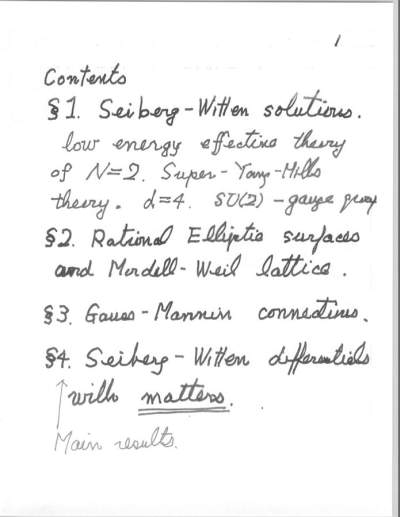 1
Contents
§1. Seiberg-Witten solutions.
low energy effective theory
of N=2. Super-Yang-Mills
theory. d=4. SU(2)-gauge group
§2. Rational Elliptic surfaces
and Mordell-Weil lattice.
§3. Gauss-Mannin connections.
§4. Seiberg-Witten differentials
with matters.
Main results.